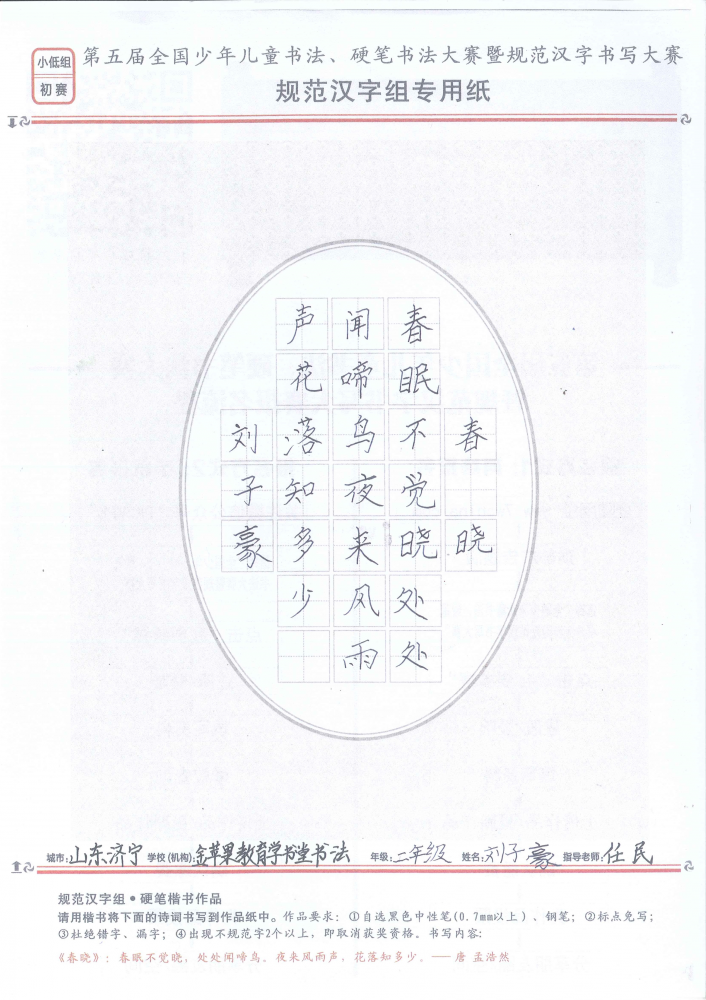 小低组
初赛
第五届全国少年儿童书法、硬笔书法大赛暨规范汉字书写大赛
规范汉字组专用纸
春晓
春眠不觉晓处处
闻啼鸟夜来风雨
声花落知多少
刘子豪
城市:山东济宁 学校(机构):金苹果教育学书堂书法 年级:二年级 姓名:刘子豪 指导老师:任民
规范汉字组•硬笔楷书作品
请用楷书将下面的诗词书写到作品纸中。作品要求：①自选黑色中性笔(0.7mm以上)、钢笔；②标点免写；
③杜绝错字、漏字；④出现不规范字2个以上，即取消获奖资格。书写内容：
《春晓》：春眠不觉晓，处处闻啼鸟。夜来风雨声，花落知多少。——唐 孟浩然